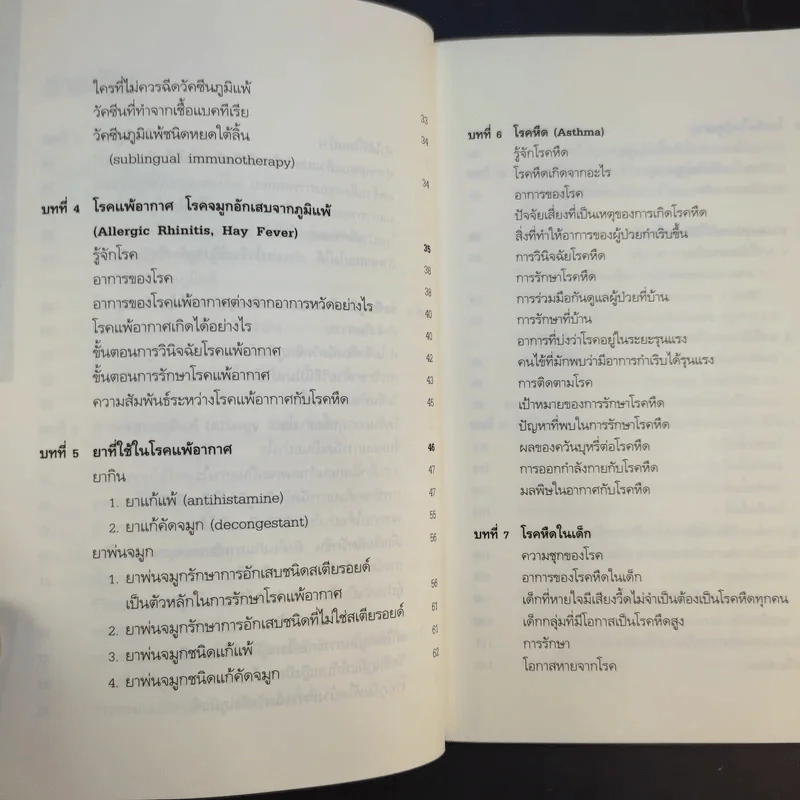 ใครที่ไม่ควรฉีดวัคซีนภูมิแพ้
วัคซีนที่ทำจากเชื้อแบคทีเรีย 33
วัคซีนภูมิแพ้ชนิดหยดใต้ลิ้น 34
(sublingual immunotherapy)
34
บทที่ 4 โรคแพ้อากาศ โรคจมูกอักเสบจากภูมิแพ้
(Allergic Rhinitis, Hay Fever)
รู้จักโรค 35
อาการของโรค 38
อาการของโรคแพ้อากาศต่างจากอาการหวัดอย่างไร 38
โรคแพ้อากาศเกิดได้อย่างไร 40
ขั้นตอนการวินิจฉัยโรคแพ้อากาศ 40
ขั้นตอนการรักษาโรคแพ้อากาศ 42
ความสัมพันธ์ระหว่างโรคแพ้อากาศกับโรคหืด 43
45
บทที่ 5 ยาที่ใช้ในโรคแพ้อากาศ 46
ยากิน 47
1. ยาแก้แพ้ (antihistamine) 47
2. ยาแก้คัดจมูก (decongestant) 55
ยาพ่นจมูก 56
1. ยาพ่นจมูกรักษาการอักเสบชนิดสเตียรอยด์
เป็นตัวหลักในการรักษาโรคแพ้อากาศ 56
2. ยาพ่นจมูกรักษาการอักเสบชนิดที่ไม่ใช่สเตียรอยด์ 61
3. ยาพ่นจมูกชนิดแก้แพ้ 61
4. ยาพ่นจมูกชนิดแก้คัดจมูก 62
บทที่ 6 โรคหืด (Asthma)
รู้จักโรคหืด
โรคหืดเกิดจากอะไร
อาการของโรค
ปัจจัยเสี่ยงที่เป็นเหตุของการเกิดโรคหืด
สิ่งที่ทำให้อาการของผู้ป่วยกำเริบขึ้น
การวินิจฉัยโรคหืด
การรักษาโรคหืด
การร่วมมือกันดูแลผู้ป่วยที่บ้าน
การรักษาที่บ้าน
อาการที่บ่งว่าโรคอยู่ในระยะรุนแรง
คนไข้ที่มักพบว่ามีอาการกำเริบได้รุนแรง
การติดตามโรค
เป้าหมายของการรักษาโรคหืด
ปัญหาที่พบในการรักษาโรคหืด
ผลของควันบุหรี่ต่อโรคหืด
การออกกำลังกายกับโรคหืด
มลพิษในอากาศกับโรคหืด
บทที่ 7 โรคหืดในเด็ก
ความชุกของโรค
อาการของโรคหืดในเด็ก
เด็กที่หายใจมีเสียงวี้ดไม่จำเป็นต้องเป็นโรคหืดทุกคน
เด็กกลุ่มที่มีโอกาสเป็นโรคหืดสูง
การรักษา
โอกาสหายจากโรค